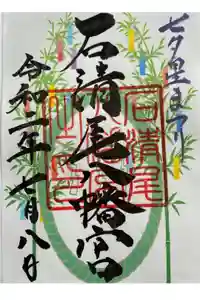 七夕星まつり
石清尾八幡宮
令和二年七月八日
石清尾